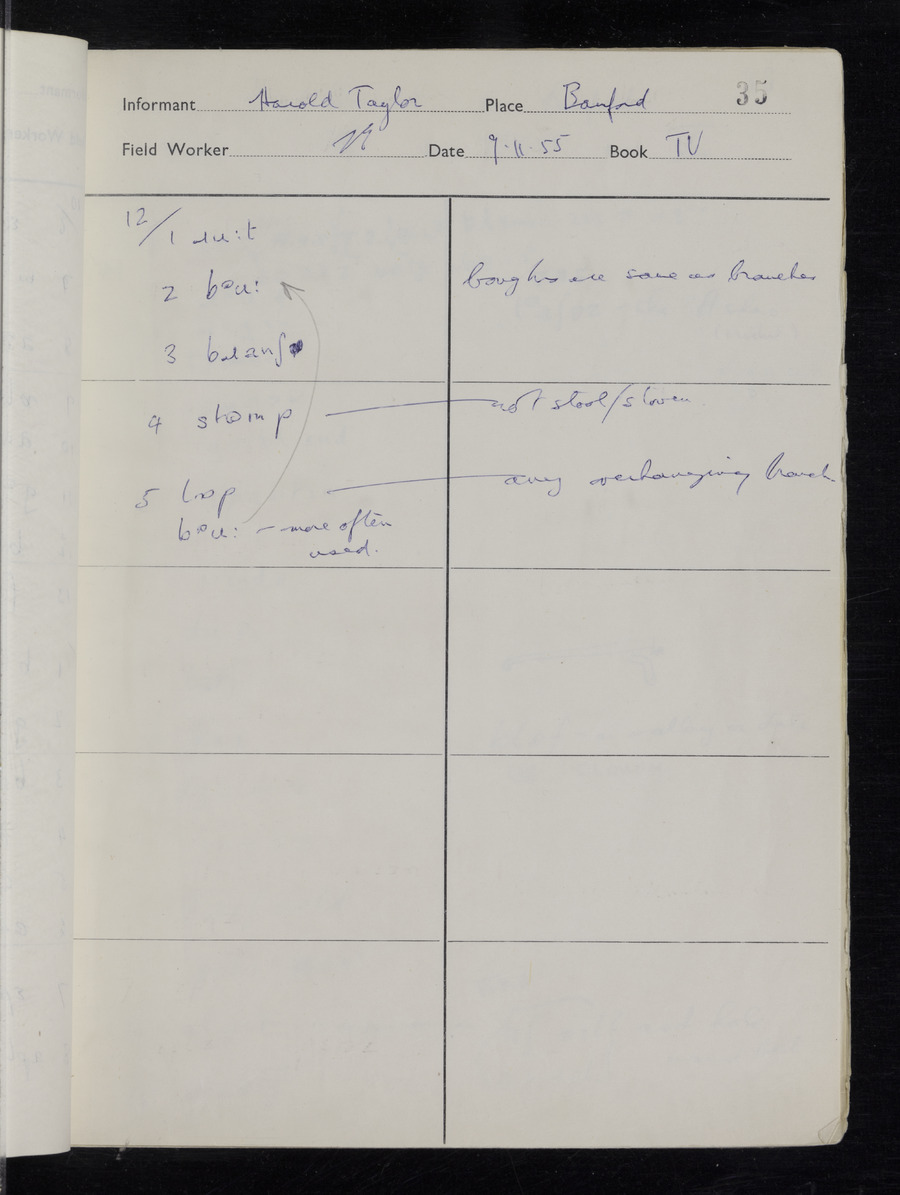 35
Informant Harold Taylor Place Bamford
Field Worker Date 9·11·55 Book IV
12/1 ɹuːt
2 bəuː boughs are same as branches
3 bɹanʃ
4 stomp not stool/stoven
5 lɒp any overhanging branch
bəuː – more often
used.